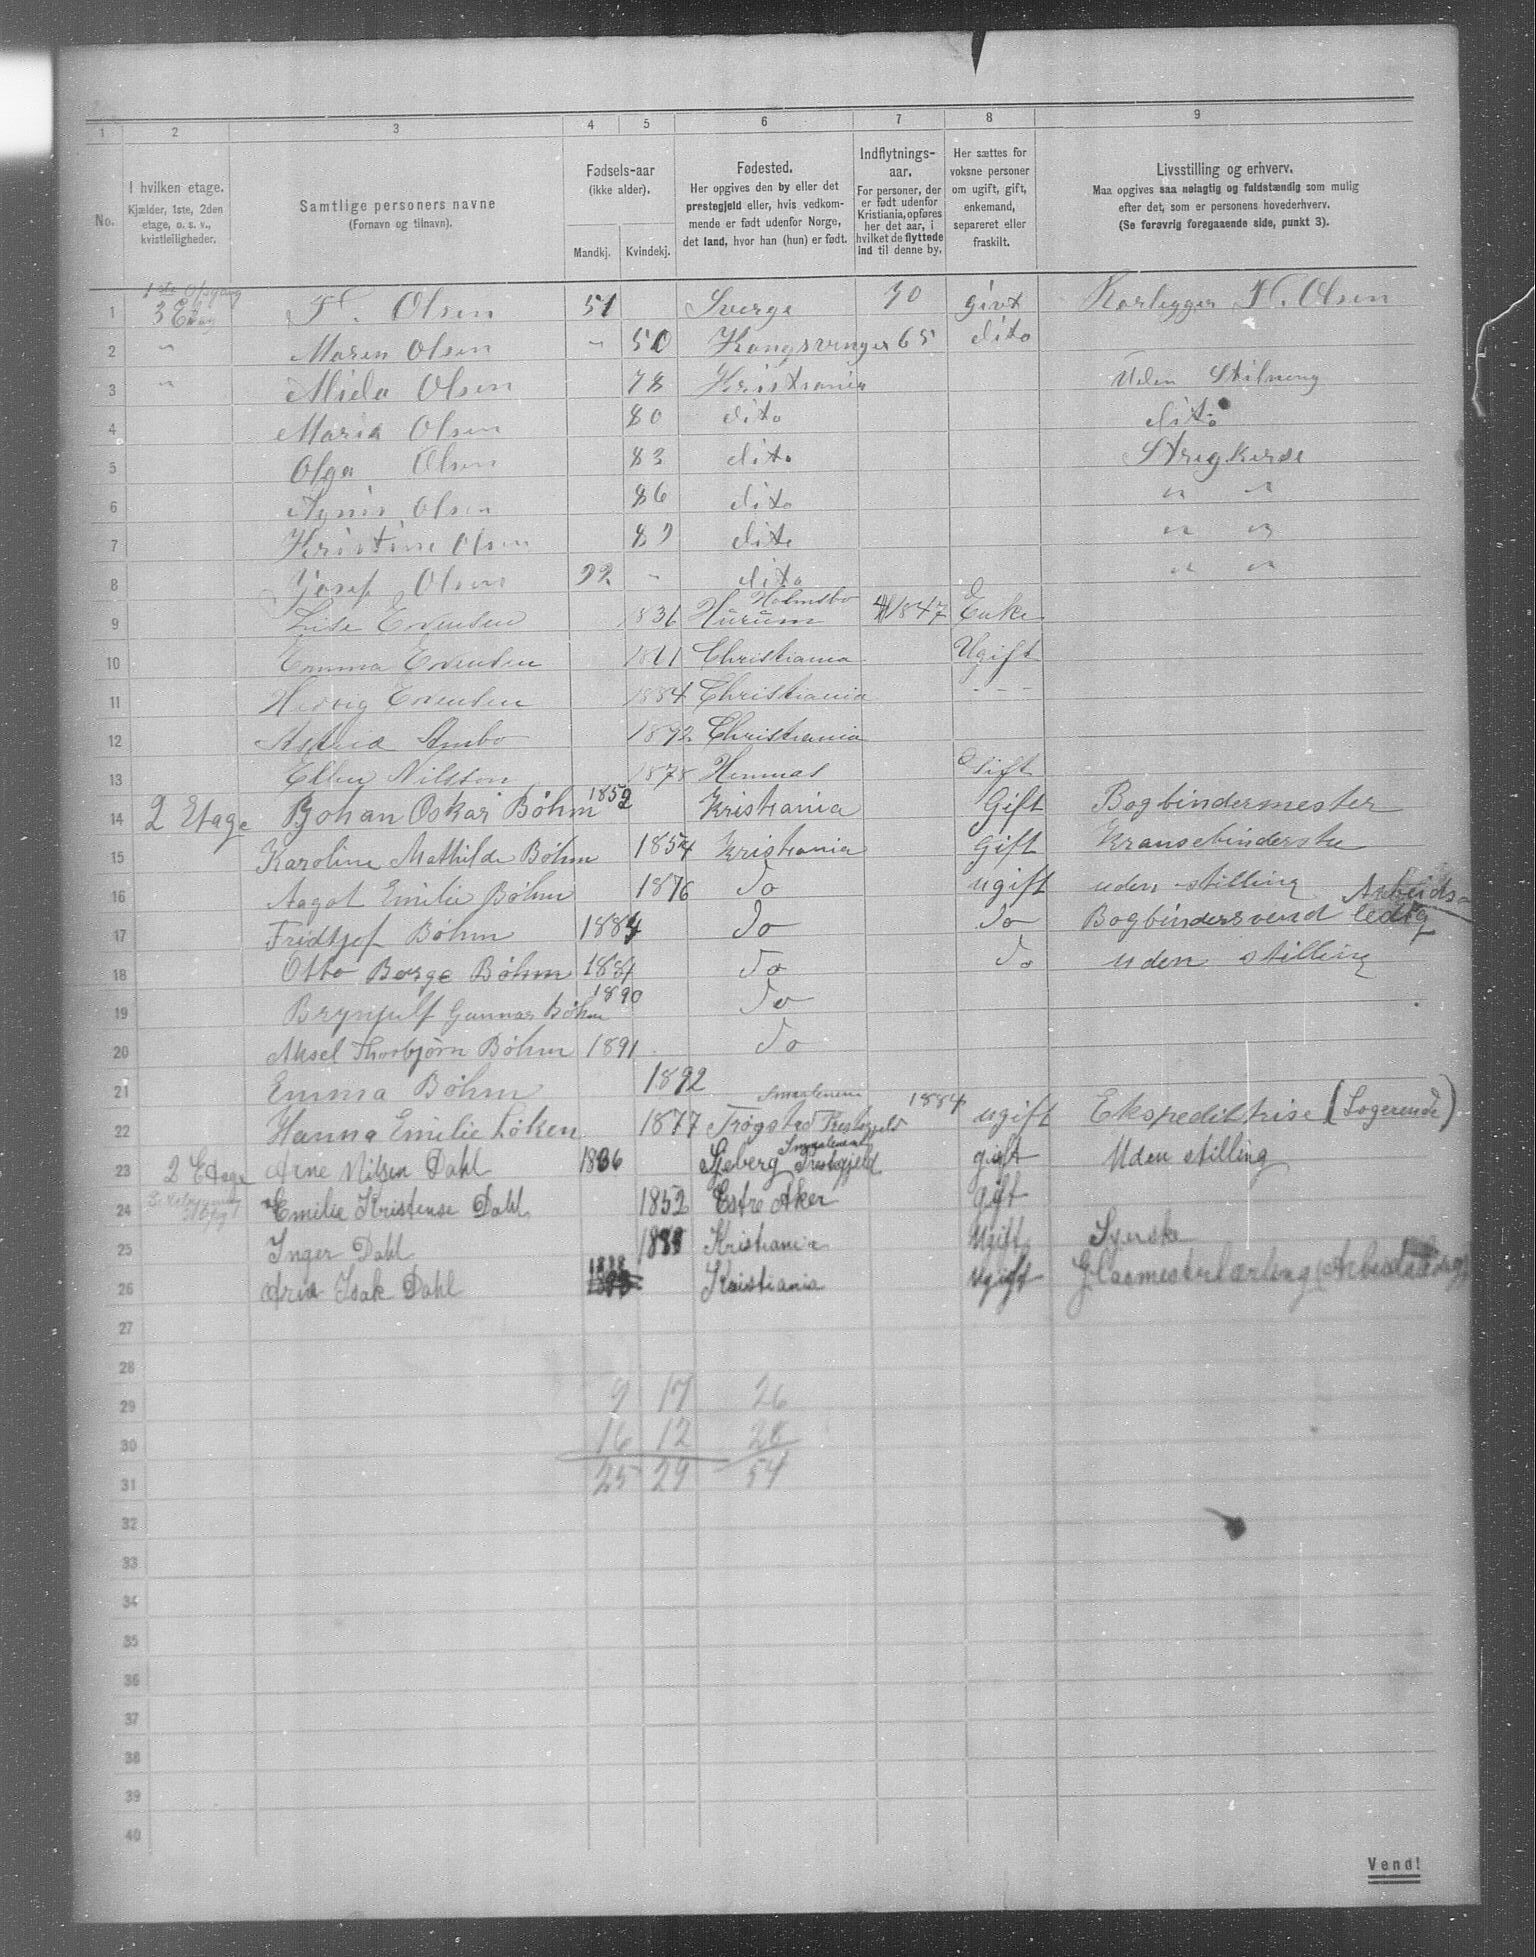 1 2 3 4 5 6 7 8 9
No.
I hvilken etage.
Kjælder, 1ste, 2den etage, o. s. v., kvistleiligheder.
Samtlige personers navne
(Fornavn og tilnavn).
Fødsels-aar
(ikke alder).
Mandkj. Kvindekj.
Fødested.
Her opgives den by eller det prestegjeld eller, hvis vedkommende er født udenfor Norge, det land, hvor han (hun) er født.
Indflytnings-aar.
For personer, der er født udenfor Kristiania, opføres her det aar, i hvilket de flyttede ind til denne by.
Her sættes for voksne personer om ugift, gift, enkemand, separeret eller fraskilt.
Livsstilling og erhverv.
Maa opgives saa nøiagtig og fuldstændig som mulig efter det, som er personens hovederhverv.
(Se forøvrig foregaaende side, punkt 3).
1 3 Etag Olsen 51 Sverge givt Olsen
2 " Maren Olsen " 50 Kongsvenger 65 dito
3 " Olsen 78 Kristiania Uden
4 Maria Olsen 80 dito dito
5 Olga Olsen 83 dito
6 Agnis Olsen 86 dito " "
7 Kristine Olsen 89 dito " "
8 Josef Olsen 92 " dito " "
9 Evensen 1836 Holmsbo Hurum 1847 Enke
10 Emma Evensen Christiania Ugift
11 Evensen 1884 Christiania - - -
12 Astrid 1892 Christiania
13 Nilsson 1878
14 2 Etage Johan Oskar Bøhm 1852 Kristiania Gift Bogbindermester
15 Karoline Mathilde Bøhm 1854 Kristiania Gift Kransebinderske
16 Aagot Emilie Bøhm 1876 Do ugift uden stilling
17 Fridtjof Bøhm 1884 Do Do Bogbindersvend Arbeidsledig
18 Otto Børge Bøhm 1884 Do Do uden stilling
19 Brynjulf Gunnar Bøhm 1890 Do
20 Aksel Thorbjørn Bøhm 1891 Do
21 Emma Bøhm 1892
22 Hanna Emilie Løken 1877 Smaalenene Trøgstad Prestegjeld 1884 ugift Ekspeditrise (Logerende)
23 2 Etage Arne Nilsen Dahl 1836 Smaalenene Prestegjeld gift Uden stilling
24 Emilie Kristense Dahl 1852 Østre Aker Gift
25 Inger Dahl Kristiania Ugift
26 Arne Isak Dahl Kristiania Ugift
27
28
29 9 17 26
30 16 12 28
31 25 29 54
32
33
34
35
36
37
38
39
40
Vend!